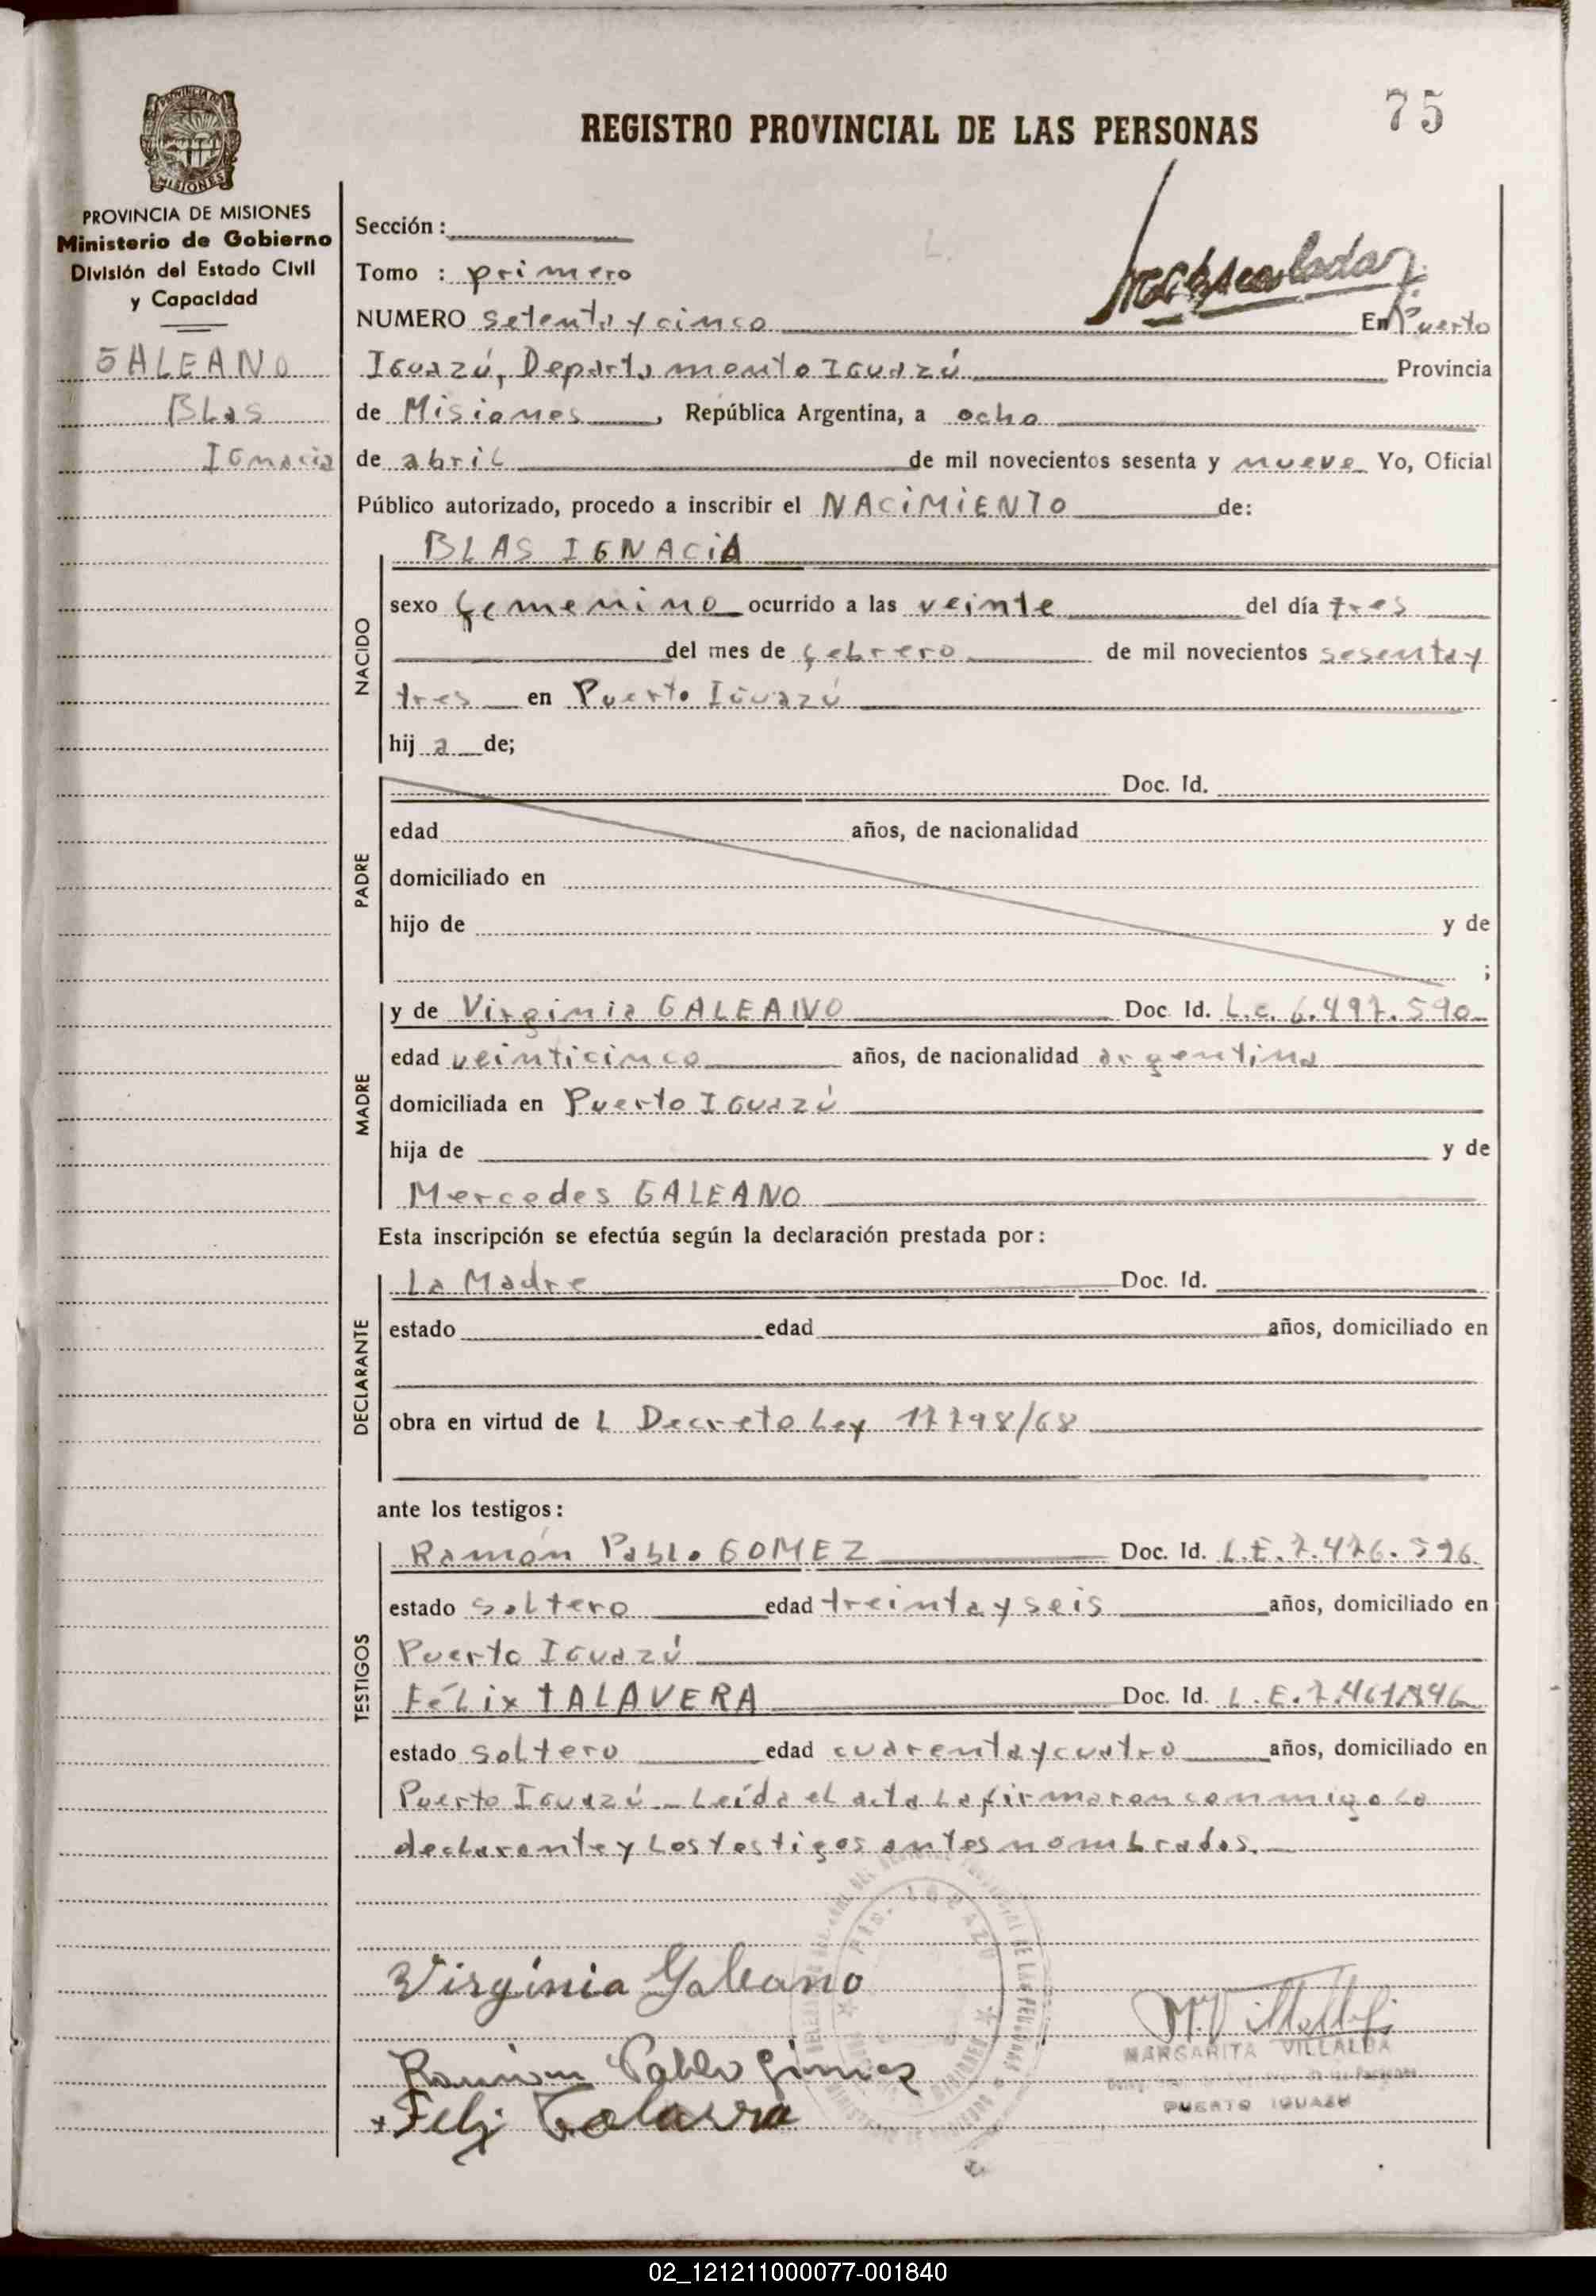 75
REGISTRO PROVINCIAL DE LAS PERSONAS
MISIONES
PROVINCIA DE MISIONES
Ministerio de Gobierno
División del Estado Civil
y Capacidad
GALEANO
Blas
Ignacia
Sección :
Tomo : primero
NUMERO setenta y cinco En Puerto
Iguazú, Departamento Iguazú Provincia
de Misiones, República Argentina, a ocho
de abril de mil novecientos sesenta y nueve Yo, Oficial
Público autorizado, procedo a inscribir el NACIMIENTO de:
NACIDO
BLAS IGNACIA
sexo femenino ocurrido a las veinte del día tres
del mes de febrero de mil novecientos sesenta y
tres en Puerto Iguazú
hij a de;
PADRE
Doc. Id.
edad años, de nacionalidad
domiciliado en
hijo de y de
;
MADRE
y de Virginia GALEANO Doc. Id. L.c. 6.497.590
edad veinticinco años, de nacionalidad argentina
domiciliada en Puerto Iguazú
hija de y de
Mercedes GALEANO
Esta inscripción se efectúa según la declaración prestada por:
DECLARANTE
La Madre Doc. Id.
estado edad años, domiciliado en
obra en virtud de L Decreto Ley 17798/68
ante los testigos:
TESTIGOS
Ramón Pablo GOMEZ Doc. Id. L.E.
estado soltero edad treinta y seis años, domiciliado en
Puerto Iguazú
Félix TALAVERA Doc. Id. L.E.
estado soltero edad cuarenta y cuatro años, domiciliado en
Puerto Iguazú - Leída el acta la firmaron conmigo la
declarante y los testigos antes nombrados.
Virginia Galeano
Ramon Pablo Gimez
Feliz Talavera
MARGARITA VILLALBA
PUERTO IGUAZU
02_121211000077-001840